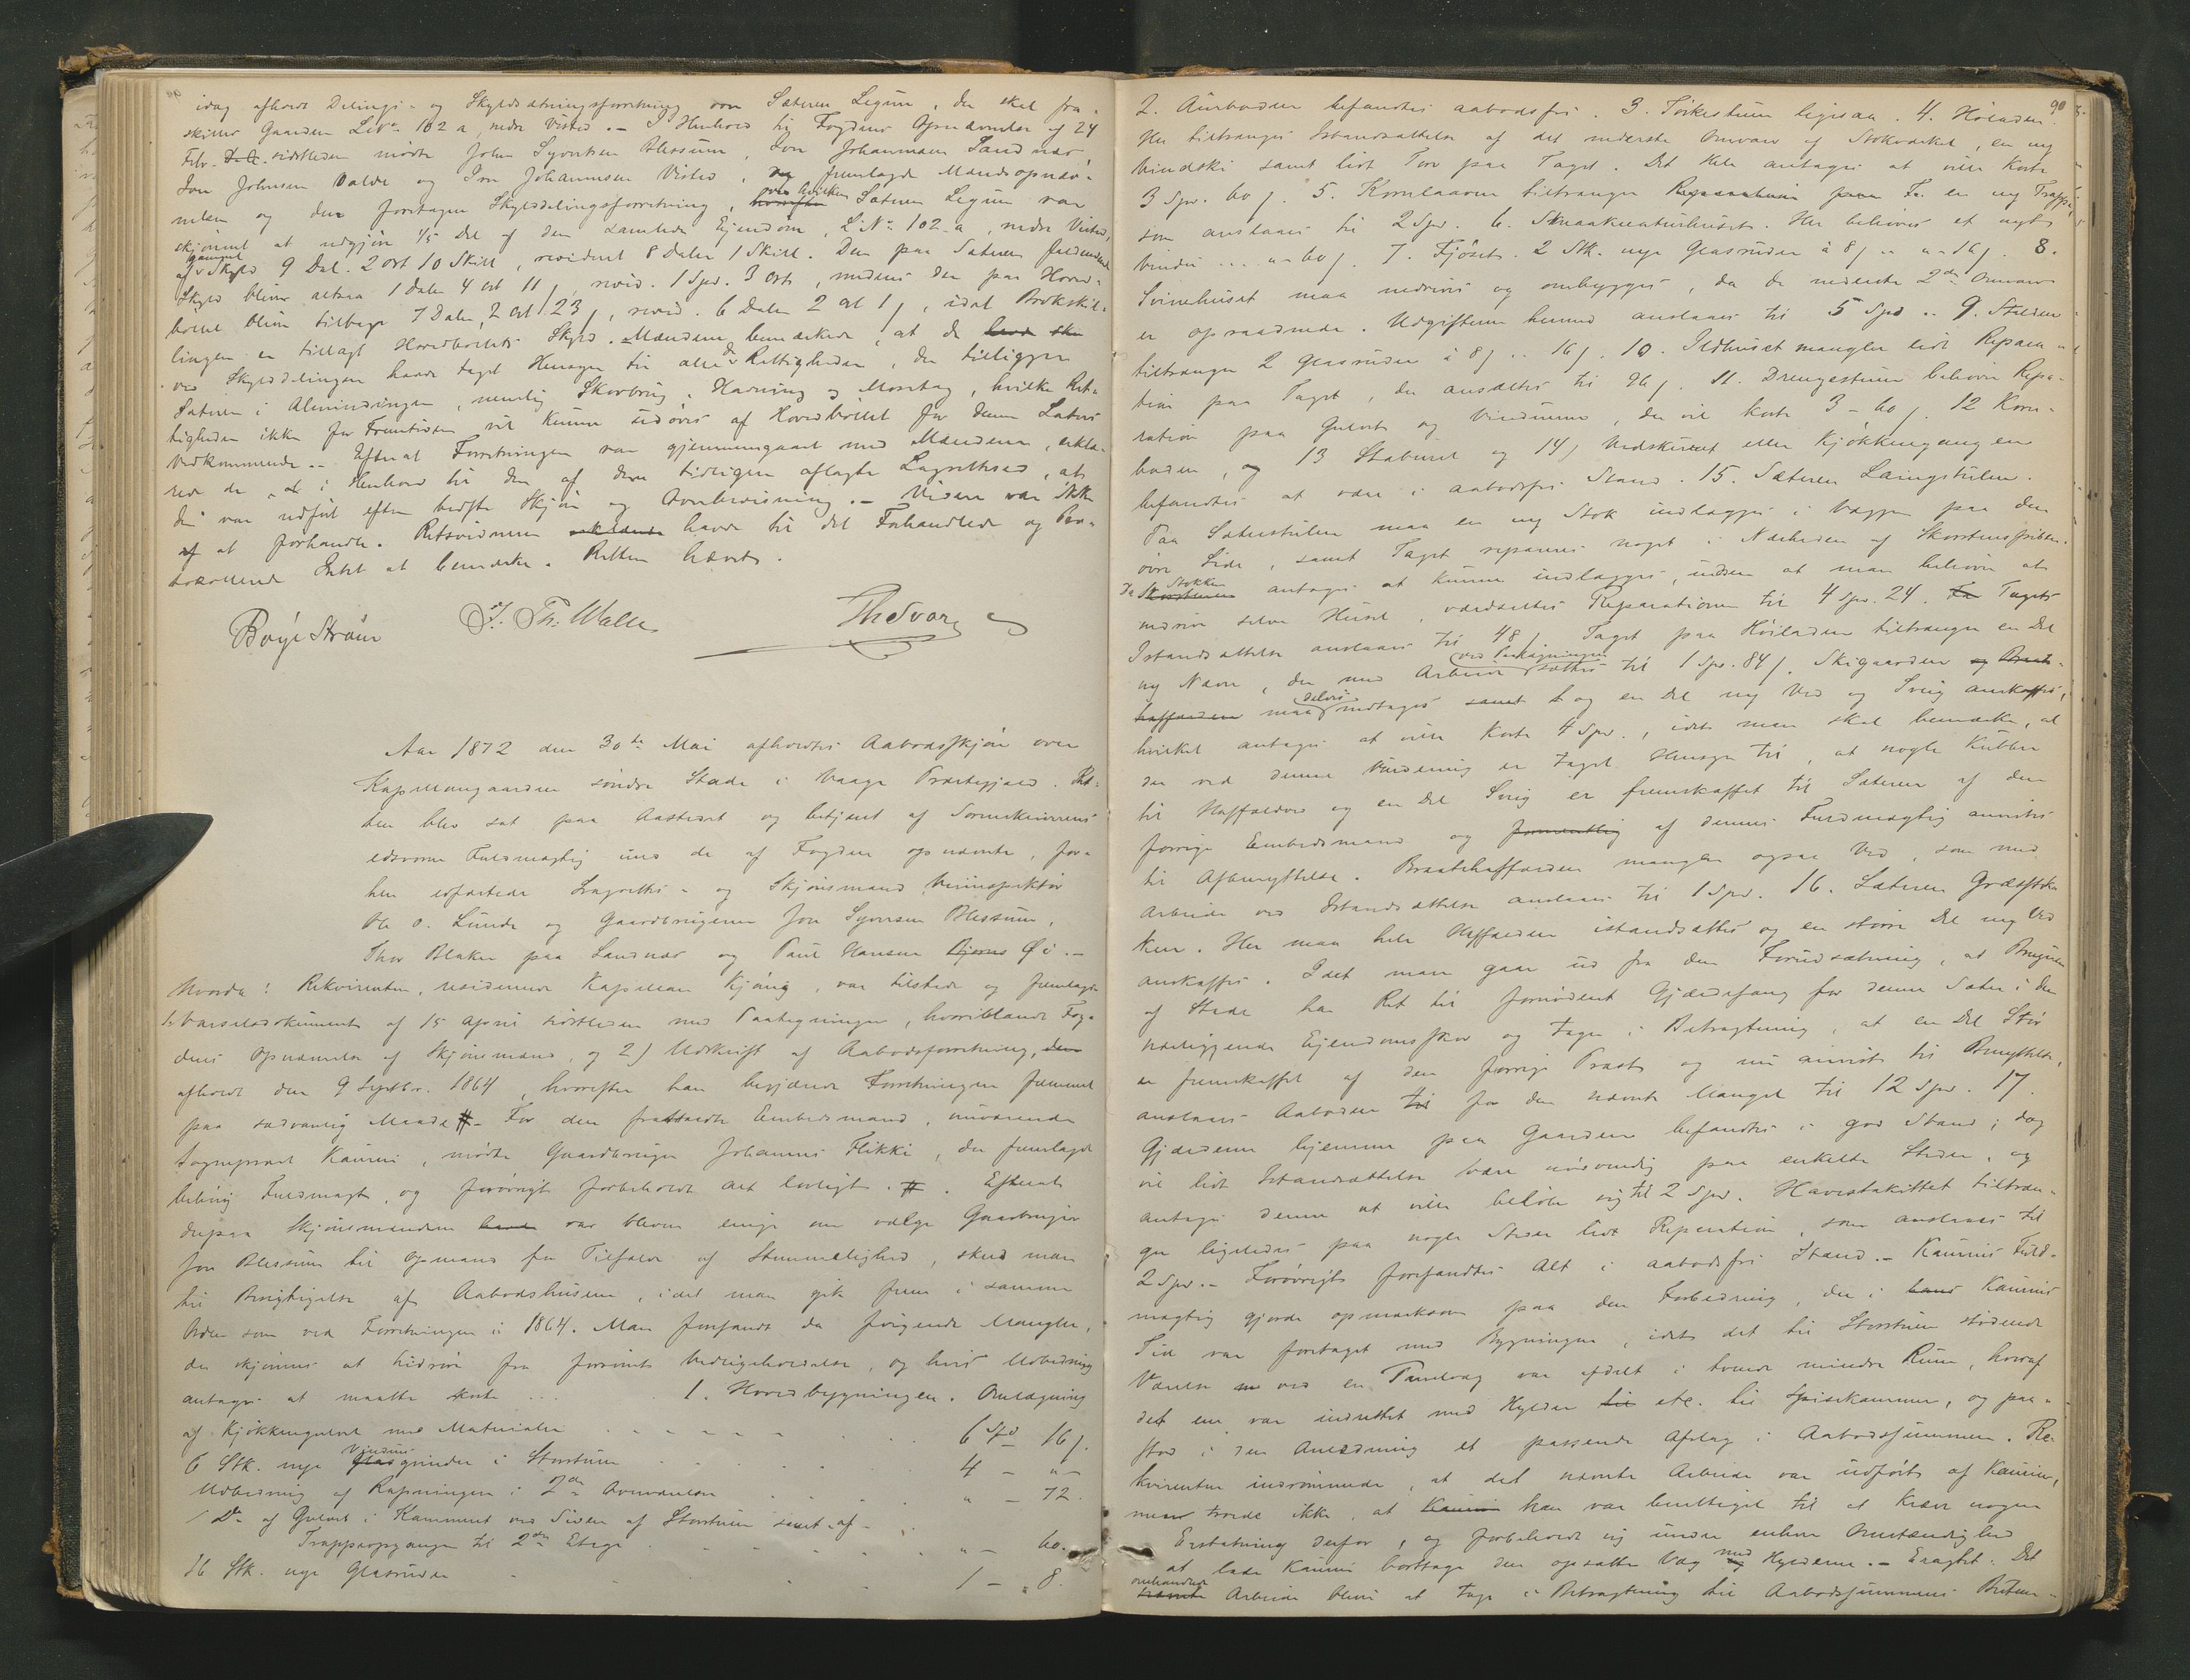 idag afholdt Delings- og Skyldsætningsforretning over Sæteren Legum, der skal fra-
skilles Gaarden LNo 102 a, nedre Visted. - I Henhold til Fogdens Opnævnelse af 24
Febr. sidstleden mødte John Syvertsen Blessum, Jon Johannesen Sandnæs,
Jon Johnsen Valde og Iver Johannesen Visted, fremlagde Mændsopnæv-
nelsen og den foretagne Skylddelingsforretning, ved hvilken Sæteren Legum var
skjønnet at udgjøre 1/5 Del af den samlede Ejendom, LNo: 102 a, nedre Visted,
af gammel Skyld 9 Dal. 2 ort 10 Skill, revideret 8 Daler 1 Skill. Den paa Sæteren faldende
Skyld bliver altsaa 1 Daler 4 ort 11 ß, revid. 1 Spd. 3 ort, medens der paa Hoved-
bøllet bliver tilbage 7 Daler 2 ort 23 ß, revid. 6 Daler 2 ort 1 ß, idet Brøkskil-
lingen er tillagt Hovedbøllets Skyld. Mændene bemærkede, at de
ved Skylddelingen havde taget Hensyn til alle de Rettigheder, der tilligger
Sæteren i Almindingen, nemlig Skovbrug, Havning og Mossetag, hvilke Ret-
tigheder ikke for Fremtiden vil kunne udøves af Hovedbøllet for denne Sæters
Vedkommende. - Efterat Forretningen var gjennemgaaet med Mændene, erklæ-
rede de i Henhold til den af dem tidligere aflagte Lagrettesed, at
den var udført efter bedste Skjøn og Overbevisning. - Videre var ikke
at forhandle. Retsvidnerne havde til det Forhandlede og Pro-
tokollerede Intet at bemærke. Retten hævet.
Boye Strøm J. Th. Walle Th Svare
Aar 1872 den 30te Mai afholdtes Aabodsskjøn over
Kapellangaarden søndre Stade i Vaage Præstegjæld. Ret-
ten blev sat paa Aastedet og betjent af Sorenskriverens
edsvorne Fuldmægtig med de af Fogden opnævnte, for-
hen edfæstede Lagrettes- og Skjønsmænd Veiinspektør
Ole O. Lunde og Gaardbrugerne Jon Syversen Blessum,
Thor Blaker paa Sandnæs og Paul Hansen Øi. -
Hvorda: Rekvirenten, residerende Kapellan Kjønig, var tilstede og fremlagde
1. Varselsdokument af 15 April sidstleden med Paategninger, hvoriblandt Fog-
dens Opnævnelse af Skjønsmænd, og 2) Udskrift af Aabodsforretning,
afholdt den 9 Septbr. 1864, hvorefter han begjærede Forretningen fremmet
paa sædvanlig Maade #- For den fratraadte Embedsmand, nuværende
Sognepræst Kaurin, mødte Gaardbruger Johannes Flikki, der fremlagde
behørig Fuldmagt, og forøvrigt forbeholdt Alt lovligt. #. Efterat
derpaa Skjønsmændene var blevne enige om vælge Gaardbruger
Jon Blessum til Opmand for Tilfælde af Stemmelighed, skred man
til Besigtigelse af Aabodshusene, idet man gik frem i samme
Orden som ved Forretningen i 1864. Man forefandt da følgende Mangler,
der skjønnes at hidrøre fra forsømt Vedligeholdelse, og hvis Udbedring
antages at maatte koste ... 1. Hovedbygningen. Omlægning
af Kjøkkengulvet med Materialer 6 Spd 16 ß.
6 Stk. nye Vindusgrinder i Storstuen 4 - " -
Udbedring af Rapningen i 2den Overværelse " - 72.
Do af Gulvet i Kammeret ved Siden af Storstuen samt af
Trappeopgangen til 2den Etage " - 60.
26 Stk. nye Glasruder 1 - " 8.
90
2. Aurboden befandtes aabodsfri. 3. Tørkestuen ligesaa. 4. Høladen.
Her tiltrænges Istandsættelse af det nederste Omvar af Stokværket, en ny
Vindski samt lidt Torv paa Taget. Det Hele antages at ville koste
3 Spd. 60 ß. 5. Kornlaaven tiltrænger en ny Trappe,
som anslaaes til 2 Spd. 6. Smaakreaturhuset. Her behøves et nyt
Vindu ... " - 60 ß. 7. Fjøset. 2 Stk. nye Glasruder à 8 ß .. " - 16 ß. 8.
Svinehuset maa nedrives og ombygges, da de nederste 2de Omvar
er opraadnede. Udgifterne herved anslaaes til 5 Spd .. 9. Stalden
tiltrænger 2 Glasruder à 8 ß .. 16 ß. 10. Ildhuset mangler lidt Repara-
tion paa Taget, der ansættes til 96 ß. 11. Drengestuen behøver Repa-
ration paa Gulvet og Vinduerne, der vil koste 3 - 60 ß. 12 Korn-
boden, og 13 Staburet og 14) Vedskuret eller Kjøkkengangen
befandtes at være i aabodsfri Stand. 15. Sæteren Læingstulen.
Paa Sæterstulen maa en ny Stok indlægges i Væggen paa den
øvre Side, samt Taget repareres noget i Nærheden af Skorstenspiben.
Da Stokken antages at kunne indlægges, uden at man behøver at
nedrive selve Huset, værdsættes Reparationen til 4 Spd. 24. Tagets
Istandsættelse anslaaes til 48 ß. Taget paa Høiladen tiltrænger en Del
ny Næver, der med Arbeide ved Paalægningen sættes til 1 Spd. 84 ß. Skigaarden
maa delvis nedtages og en Del ny Ved og Svig anskaffes,
hvilket antages at ville koste 4 Spd., idet man skal bemærke, at
der ved denne Vurdering er taget Hensyn til, at nogle Kubber
til Haffældved og en Del Svig er fremskaffet til Sæteren af den
forrige Embedsmand og af dennes Fuldmægtig anvistes
til Afbenyttelse. Braatehaffælden mangler ogsaa Ved, som med
Arbeide ved Istandsættelse anslaaes til 1 Spd. 16. Sæteren Græsslet-
ken. Her maa hele Haffælden istandsættes og en større Del ny Ved
anskaffes. Idet man gaar ud fra den Forudsætning, at Brugeren
af Stade har Ret til fornødent Gjærdefang for denne Sæter i den
nærliggende Ejendomsskov og tager i Betragtning, at en Del Stør
er fremskaffet af den forrige Præst og nu anvist til Benyttelse,
anslaaes Aaboden for den nævnte Mangel til 12 Spd. 17.
Gjærderne hjemme paa Gaarden befandtes i god Stand; dog
vil lidt Istandsættelse være nødvendig paa enkelte Steder, og
antages denne at ville beløbe sig til 2 Spd. Havestakittet tiltræn-
ger ligeledes paa nogle Steder lidt Reparation, som anslaaes til
2 Spd. - Forøvrigt forefandtes Alt i aabodsfri Stand. - Kaurins Fuld-
mægtig gjorde opmærksom paa den Forbedring, der i Kaurins
Tid var foretaget med Bygningen, idet det til Storstuen stødende
Værelse ved en Panelvæg var afdelt i tvende mindre Rum, hvoraf
det ene var indrettet med Hylder etc. til Spisekammer, og paa-
stod i den Anledning et passende Afslag i Aabodssummen. Re-
kvirenten indrømmede, at det nævnte Arbeide var udført af Kaurin,
men troede ikke, at han var berettiget til at kræve nogen
Erstatning derfor, og forbeholdt sig under enhver Omstændighed
at lade Kaurin borttage den opsatte Væg med Hylderne. - Eragtet: Det
omhandlede Arbeide bliver at tage i Betragtning til Aabodssummens Bestem-